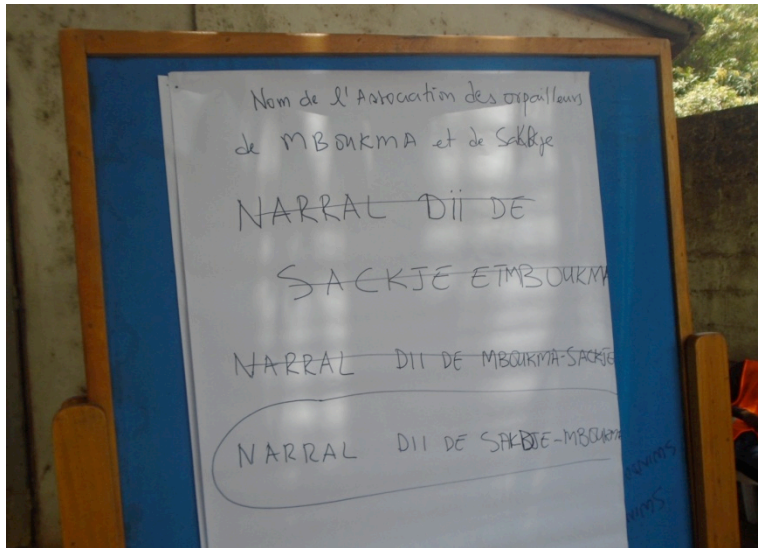 Nom de l'Association des orpailleurs
de MBOUKMA et de Sakbje
NARRAL Dii DE
SACKJE ET MBOUKMA
NARRAL DII DE MBOUKMA-SACKJE
NARRAL DII DE SAKBJE-MBOUKMA